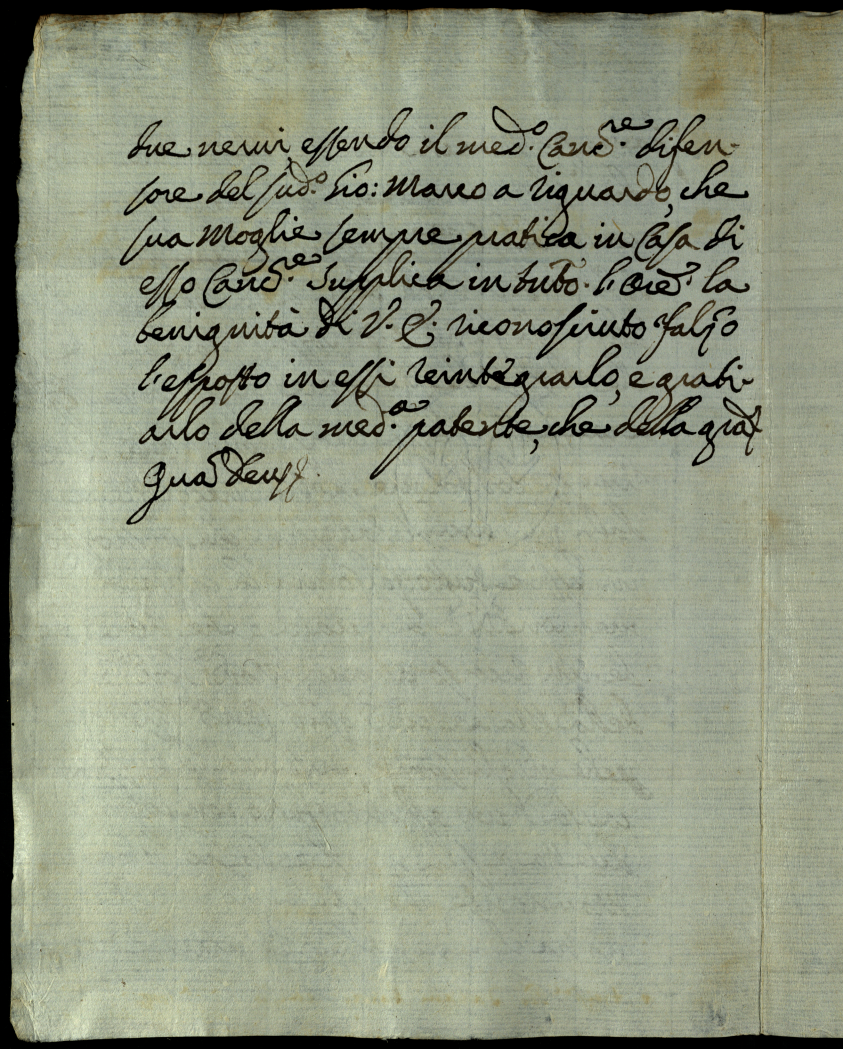 due nervi, essendo il med.º Canc.re difen-
sore del sud.º Gio: Marco a riguardo, che
sua Moglie sempre pratica in Casa di
esso Canc.re Supplica in tutto l'Ore. la
benignità di V. E. riconosciuto falso
l'esposto in essi reintegrarlo, e grati-
arlo della med.a patente, che della gra.
Qua Deus